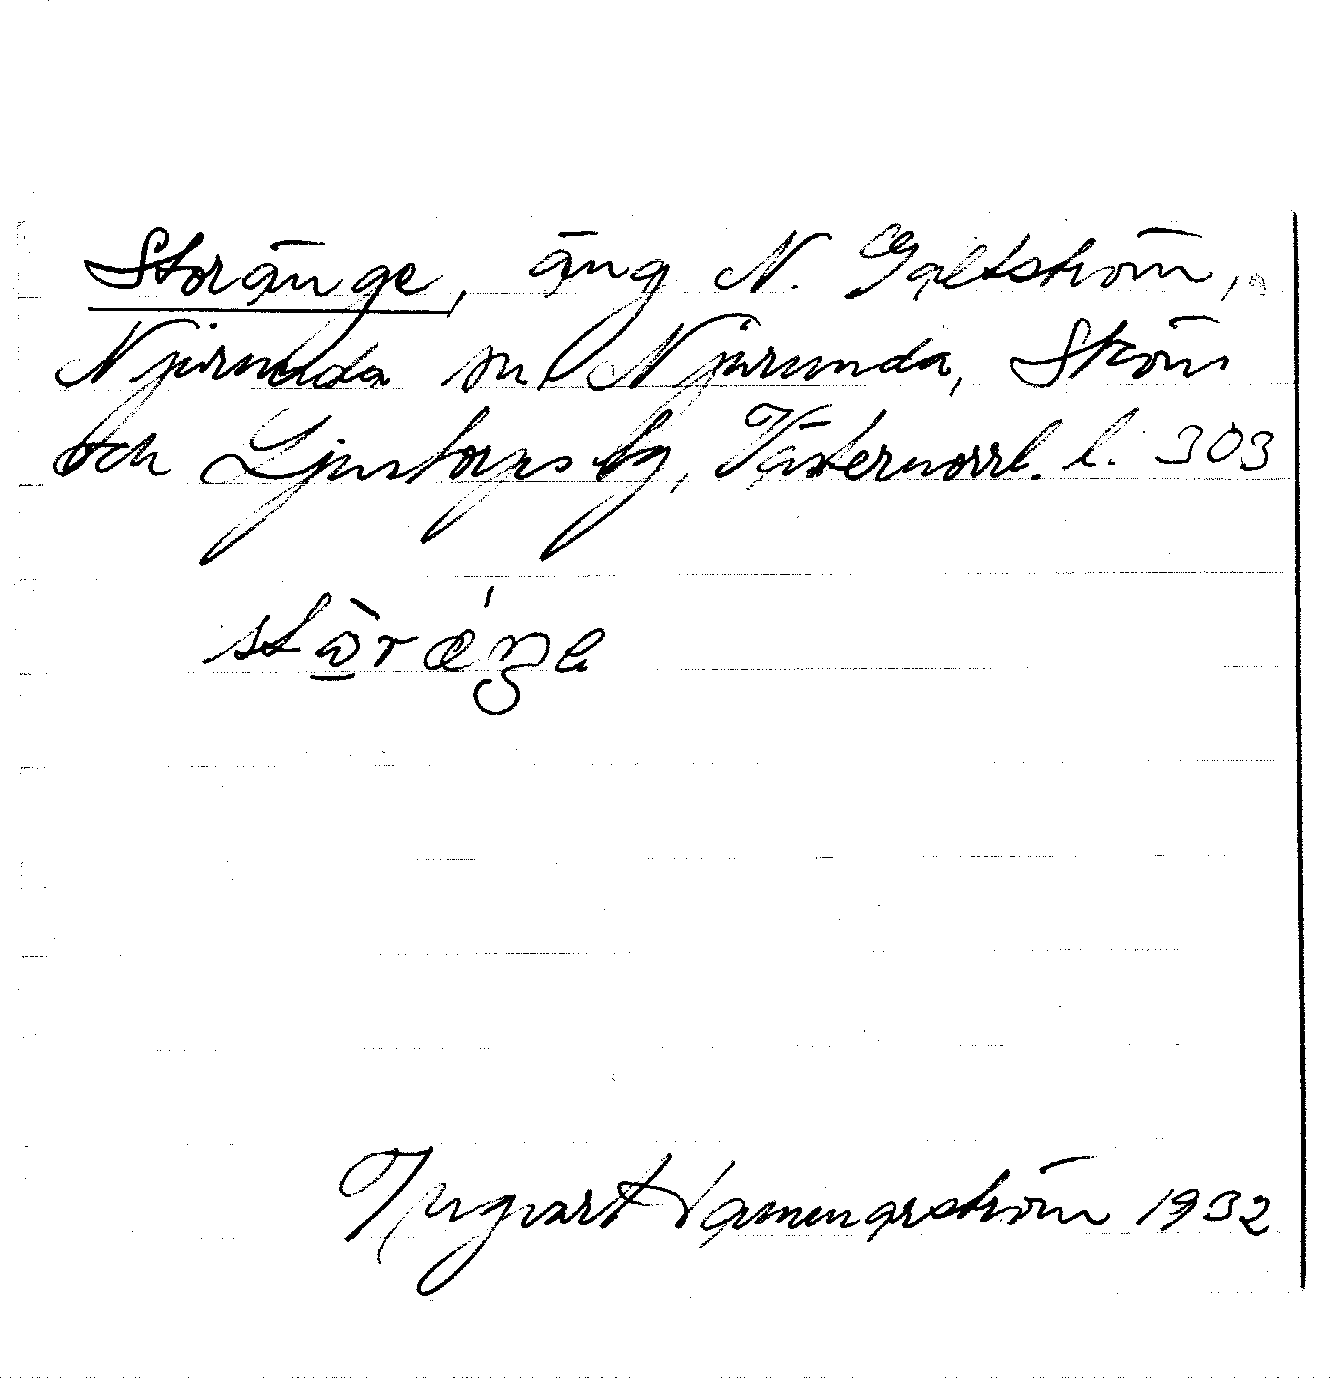 Storänge, äng N. Galtström,
Njurunda sn, Njurunda, Sköns
och Ljustorps tg, Västernorrl. l. 303
Ingvart Hammarström 1932